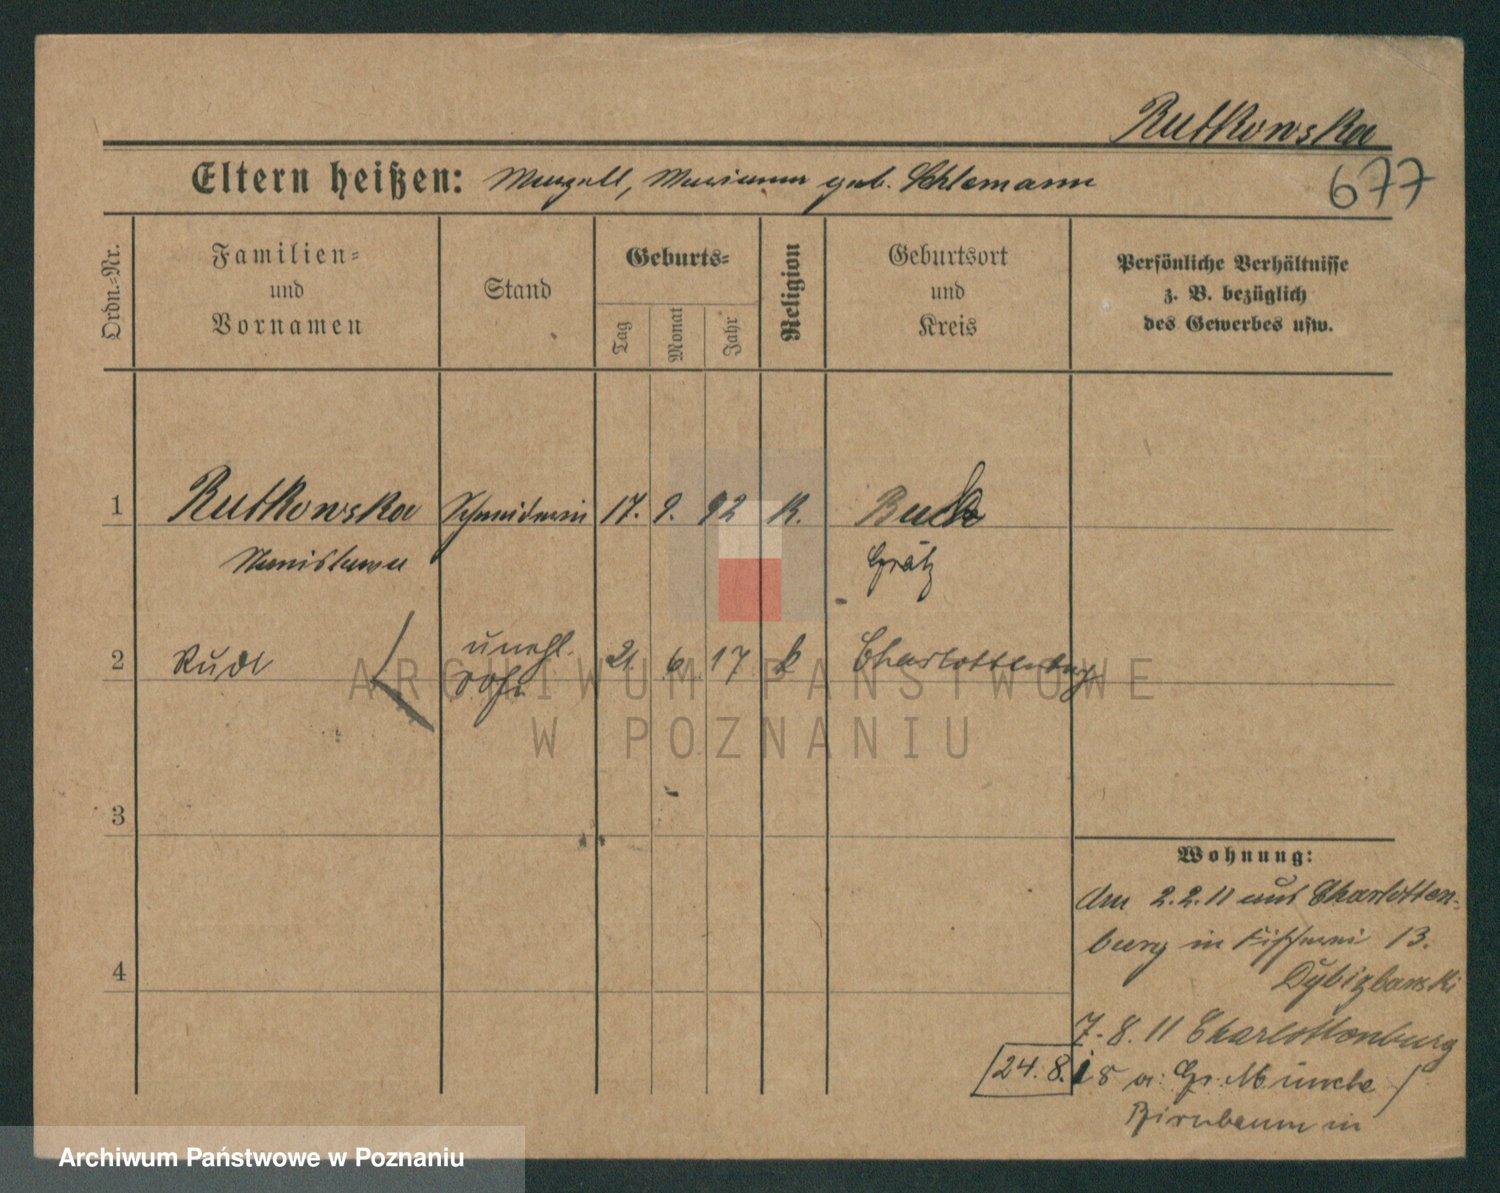 Rutkowska
Eltern heißen: Marzell, Marianna geb. Schlemann
677
Ordn.=Nr.
Familien=
und
Vornamen
Stand
Geburts=
Tag
Monat
Jahr
Religion
Geburtsort
und
Kreis
Persönliche Verhältnisse
z. B. bezüglich
des Gewerbes usw.
1 Rutkowska Schneiderin 17. 9. 92 K. Buk
Stanislawa Grätz
2 Rudi unehl. 21. 6. 17 k Charlottenburg
Sohn
ARCHIWUM PAŃSTWOWE
W POZNANIU
3
4
Wohnung:
den 2.2.11 aus Charlotten-
burg in Fischerei 13.
7.8.11 Charlottenburg
24.8.18 a: Gr. Münche /
Birnbaum in
Archiwum Państwowe w Poznaniu